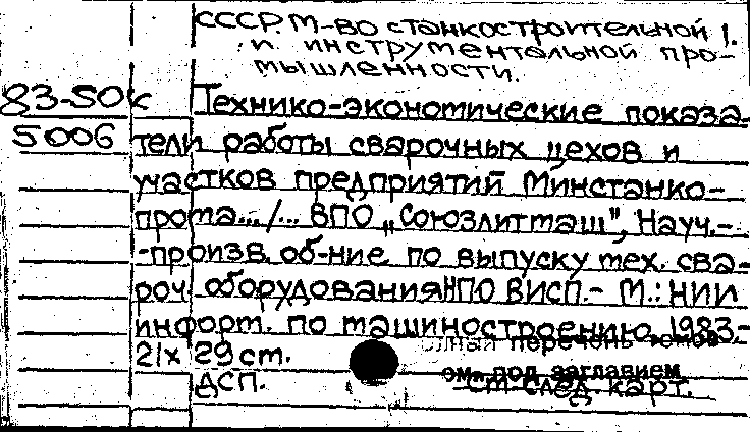 СССР. М-во станкостроительной 1.
и инструментальной про-
мышленности.
83-50к Технико-экономические показа-
5006 тели работы сварочных цехов и
участков предприятий Минстанко-
прома.../... ВПО „Союзлитмаш", Науч.-
-произв. об-ние по выпуску тех. сва-
роч. оборудования НПО ВИСП.- М.: НИИ
информ. по машиностроению, 1983.-
21х 29 ст. перечень
ДСП. под заглавием
См. след. карт.